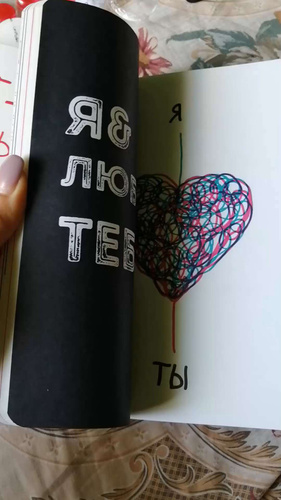 Я&
ЛЮБ
ТЕБ
Я
ТЫ